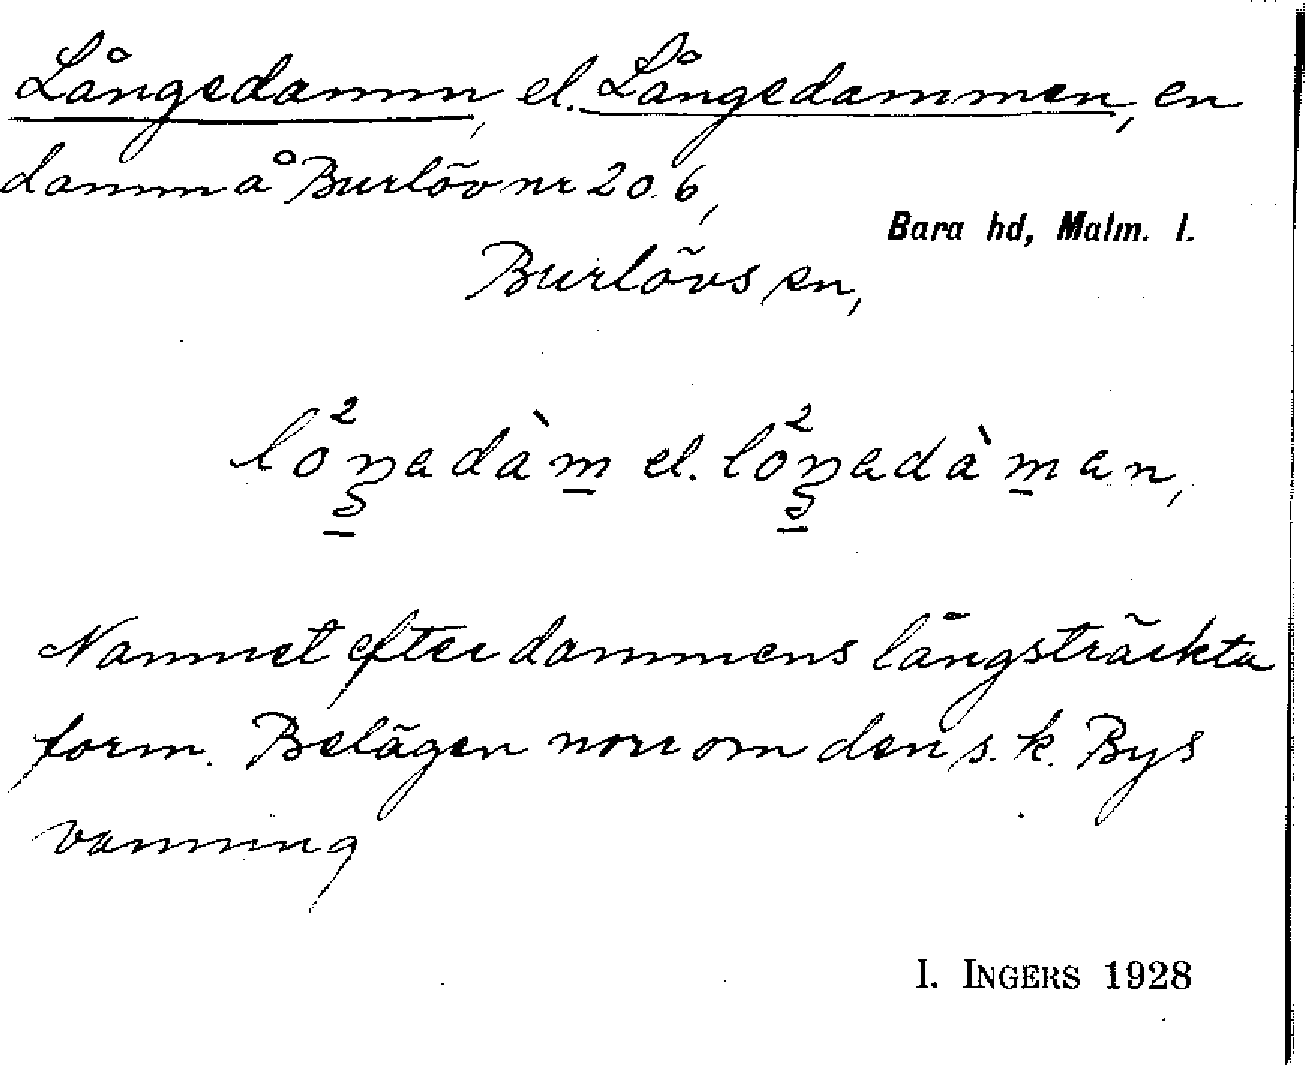 Långedamm, el. Långedammen, en
damm å Burlöv nr 20.6,
Bara hd, Malm. l.
Burlövs sn,
el.
Namnet efter dammens långsträckta
form. Belägen norr om den s.k. Bys
vanning
I. INGERS 1928